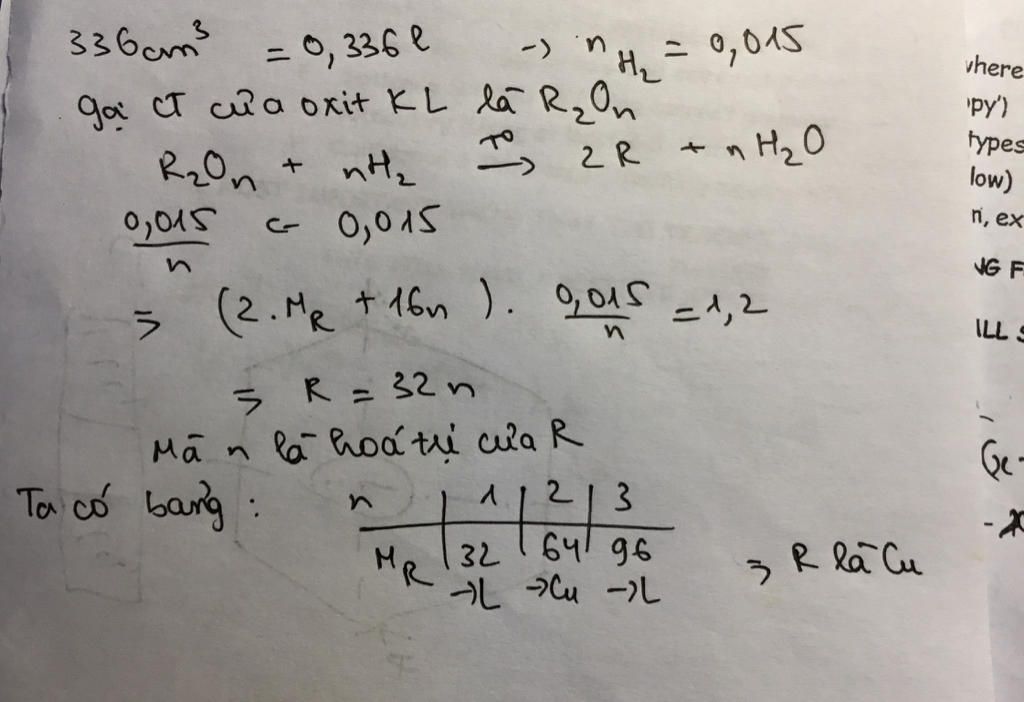 336cm³ = 0,336 l → n H₂ = 0,015
gọi CT của oxit KL là R₂Oₙ
R₂Oₙ + nH₂ →(t°) 2R + nH₂O
0,015/n ← 0,015
⇒ (2.M_R + 16n). 0,015/n = 1,2
⇒ R = 32n
Mà n là hoá trị của R
Ta có bảng: n | 1 | 2 | 3
M_R | 32 | 64 | 96
→L →Cu →L ⇒ R là Cu
where
py')
types
low)
ri, ex
NG F
ILL S